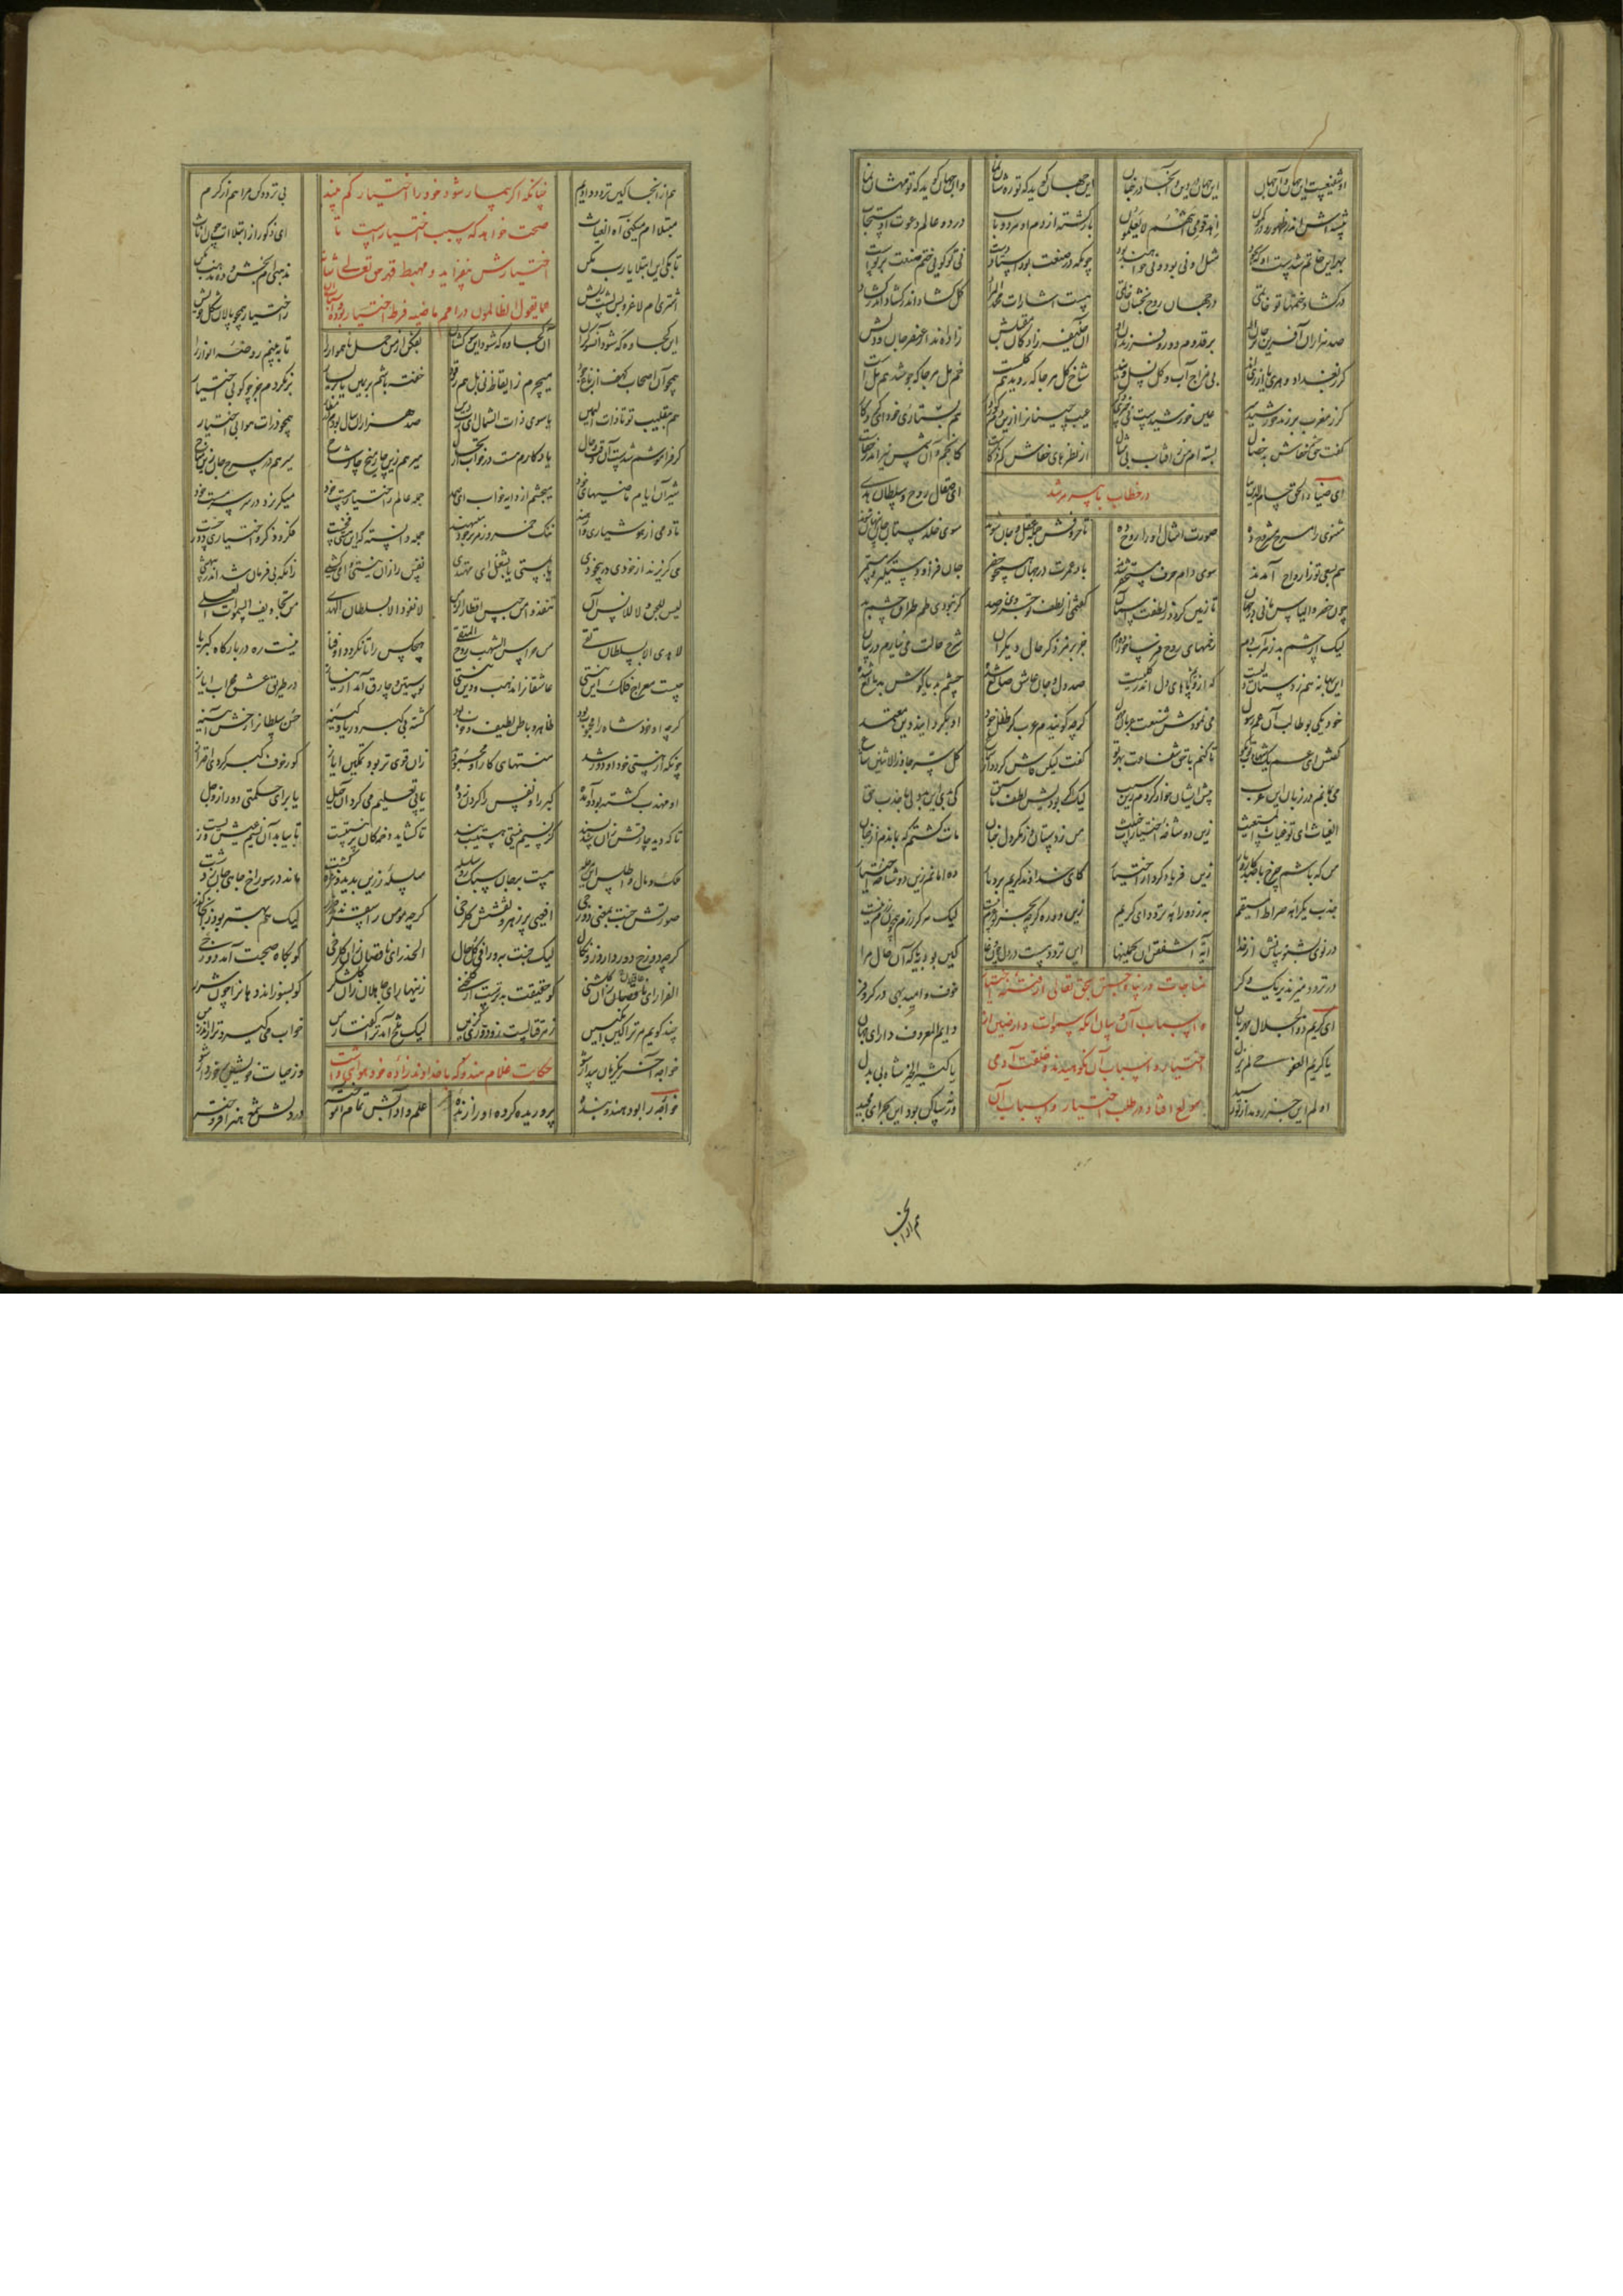 او شفیعست این جهان و آن جهان این جهان در دین و آنجا در جنان این جهان گوید که تو رهشان نما وان جهان گوید که تو مهشان نما
پیشه‌اش اندر ظهور و در کمون اهد قومی انهم لا یعلمون بازگشته از دم او هر دو باب در دو عالم دعوت او مستجاب
بهر این خاتم شدست او که بجود مثل او نی بود و نی خواهند بود چونکه در صنعت بود استاد دست نی تو گویی ختم صنعت بر توست
در گشاد ختمها تو خاتمی در جهان روح بخشان حاتمی هست اشارات محمد المراد کل گشاد اندر گشاد اندر گشاد
صد هزاران آفرین بر جان او بر قدوم و دور فرزندان او آن خلیفه زادگان مقبلش زاده‌اند از عنصر جان و دلش
گر ز بغداد و هری یا از ری اند بی مزاج آب و گل نسل وی اند شاخ گل هر جا که روید هم گلست خم مل هر جا که جوشد هم مل است
گر ز مغرب بر زند خورشید سر عین خورشیدست نی چیز دگر عیب چینان را ازین دم کور دار هم بستاری خود ای کردگار
گفت حق چشم خفاش بدخصال بسته ام من ز آفتاب بی مثال از نظرهای خفاش کم و کاست انجم آن شمس نیز اندر خفاست
در خطاب با پیر مرشد
ای ضیاء الحق حسام الدین بیا ای صقال روح و سلطان الهدی
مثنوی را مسرح مشروح ده صورت امثال او را روح ده تا حروفش جمله عقل و جان شوند سوی خلدستان جان پران شوند
هم بسعی تو ز ارواح آمدند سوی دام حرف شدند باد عمرت در جهان همچون خضر جان فزا و دستگیر و مستمر
چون خضر و الیاس مانی در جهان تا زمین گردد ز لطفت آسمان گفتمی از لطف تو جزوی ز صد گر نبودی طمطراق چشم بد
لیک از چشم بد زهرآب دم زخمهای روح فرسا خورده ام جز برمز ذکر حال دیگران شرح حالت می نیارم در بیان
این بهانه هم ز دستان دلیست که ازو پاهای دل اندر گلیست صد دل و جان عاشق صانع شده چشم بد یا گوش بد مانع شده
خود یکی بوطالب آن عم رسول می نمودش شنعت عربان مهول که چه گویندم عرب کز طفل خود او بگردانید دین معتمد
گفتش ای عم یک شهادت تو بگو تا کنم با حق شفاعت بهر تو گفت لیکن فاش گردد از سماع کل سر جاوز الاثنین شاع
می بمانم در زبان این عرب پیش ایشان خوار گردم زین سبب لیک گر بودیش لطف ما سبق کی بدی این بددلی با جذب حق
الغیاث ای تو غیاث المستغیث زین دو شاخه اختیارات خبیث من ز دستان و ز مکر دل چنان مات گشتم که بماندم از فغان
من که باشم چرخ با صد کار و بار زین فریاد کرد از اختیار کای خداوند کریم بردبار ده امانم زین دو شاخه اختیار
جذب یکراهه صراط المستقیم به ز دو راهه تردد ای کریم زین دو ره گرچه بجز تو عزم نیست لیک هرگز رزم چون بزم نیست
در نوی بشنو بیانش از خدا آیة اشفقن ان یحملنها این تردد هست در دل چون وغا کین بود به یا که آن حال مرا
در تردد میزند بر یکدگر خوف و امید بهی در کر و فر
مناجات و پناه جستن بحق تعالی از فتنه اختیار
و اسباب آن و بیان آنکه سموات و ارضین از
اختیار و اسباب آن شکوهیدند و خلقت آدمی
مولع افتاد در طلب اختیار و اسباب آن
ای کریم ذوالجلال مهربان دایم المعروف دارای جهان
یا کریم العفو حی لم یزل یا کثیر الخیر شاه بی بدل
اولم این جزر و مد از تو رسید ورنه ساکن بود این بحر ای مجید
هم از آنجا
هم از آنجا کین تردد دادیم بی تردد کن مرا هم از کرم
چنانکه اگر بیمار شود خود را اختیار کم بیند
صحت خواهد که سبب اختیار است تا
اختیارش بیفزاید و مهبط قهر حق تعالی
اختیار بوده است
مبتلاام میکنی آه الغیاث ای ذکور از ابتلاات چون اناث
تا بکی این ابتلا یا رب مکن مذهبی ام بخش و ده مذهب مکن
اشتری ام لاغر و پس پشت ریش ز اختیار همچو پالان شکل خویش
این کجاوه که شود این سو گران آن کجاوه که شود آن سو کشان بفکن از من حمل ناهموار را تا ببینم روضه انوار را
همچو آن اصحاب کهف از باغ جود میچرم ز ایقاظ نی بل هم رقود خفته باشم بر یمین یا بر یسار برنگردم جز چو گو بی اختیار
هم بتقلیب تو تا ذات الیمین یا سوی ذات الشمال ای رب دین صد هزاران سال بودم در مطار همچو ذرات هوا بی اختیار
گر فراموشم شدست آن وقت و حال یادگارم هست در خواب ارتحال میرهم زین چارمیخ چارشاخ میجهم در مسرح جان زین مناخ
شیر آن ایام ماضیهای خود میچشم از دایه خواب ای صمد جمله عالم ز اختیار و هست خود میگریزد در سر سرمست خود
تا دمی از هوشیاری وا رهند ننگ خمر و زمر بر خود مینهند جمله دانسته که این هستی فخ است فکر و ذکر اختیاری دوزخ است
می گریزند از خودی در بیخودی یا بمستی یا بشغل ای مهتدی نفس را زان نیستی وا می کشی زانکه بی فرمان شد اندر بیهشی
لیس للجن و لا للانس ان تنفذوا من حبس اقطار الزمن لا نفوذ الا بسلطان الهدی من تجاویف السموات العلی
لا هدی الا بسلطان یقی من حراس الشهب روح المتقی هیچکس را تا نگردد او فنا نیست ره در بارگاه کبریا
چیست معراج فلک این نیستی عاشقان را مذهب و دین نیستی پوستین و چارق آمد از نیاز در طریق عشق محراب ایاز
گرچه او خود شاه را محبوب بود ظاهر و باطن لطیف و خوب بود گشته بی کبر و ریا و کینه حسن سلطان را رخش آیینه
چونکه از هستی خود او دور شد منتهای کار او محمود بد زان قوی تر بود تمکین ایاز کو ز خوف کبر کردی احتراز
او مهذب گشته بود و آمده کبر را و نفس را گردن زده یا پی تعلیم می کرد آن حیل یا برای حکمتی دور از وجل
یا که دید چارقش زان شد پسند کز نسیم نیستی هستی است بند تا گشاید دخمه کان بر نیستیست تا بیابد آن نسیم عیش و زیست
ملک و مال و اطلس این مرحله هست بر جان سبک رو سلسله سلسله زرین بدید و غره گشت ماند در سوراخ چاهی جان ز دشت
صورتش جنت بمعنی دوزخی افعیی پر زهر و نقشش گلرخی گرچه مومن را سقر ندهد ضرر لیک هم بهتر بود زآنجا گذر
گرچه دوزخ دور دارد زو نکال لیک جنت به ورا فی کل حال الحذر ای ناقصان زان گلرخی کو بگاه صحبت آمد دوزخی
الفرار ای غافلان زان گلشنی کو حقیقت بدترست از گلخنی زینهار ای جاهلان زان گلشکر کو بسوزاند دهان را چون شرر
چند گویم مر ترا کین انگبین زهر قتالست زو دوری گزین لیک تلخ آمد ترا گفتار من خواب می گیرد ترا ز انذار من
حکایت غلام هندو که با خداوندزاده خود هوای داشت
خواجه را بود هندو بنده پروریده کرده او را زنده علم و آدابش تمام آموخته در دلش شمع هنر افروخته